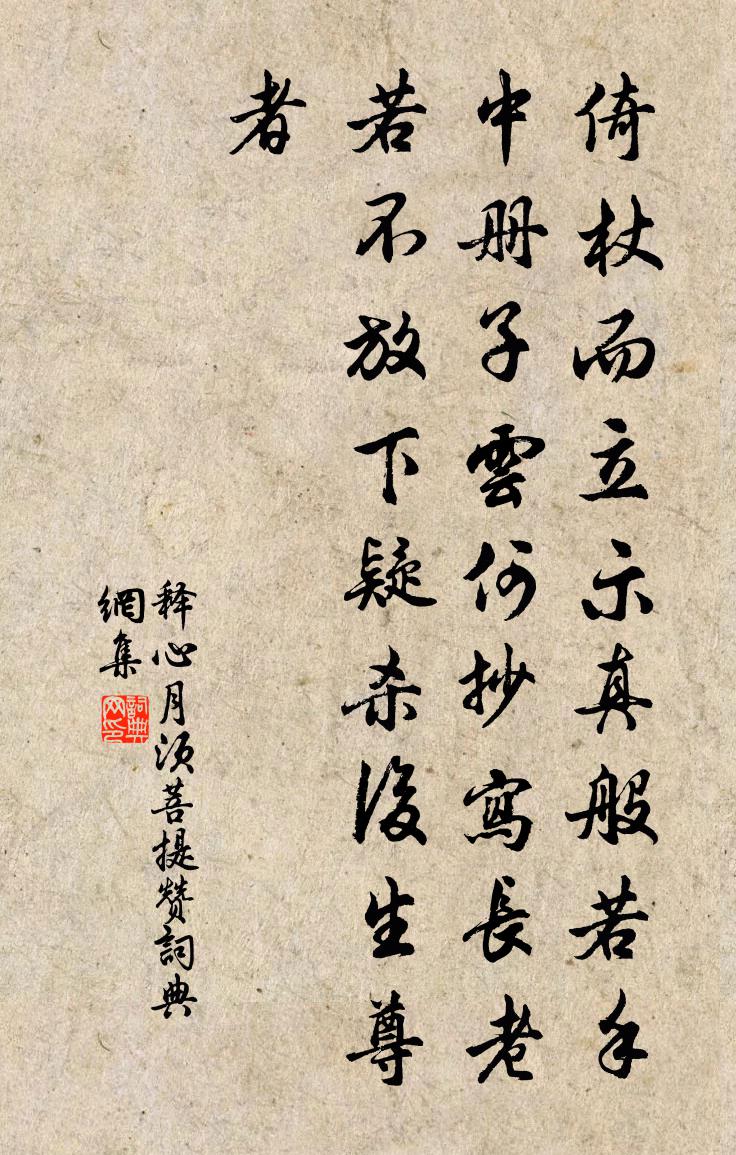 倚杖而立示真般若手
中册子雲何抄寫長老
若不放下疑杀後生尊
者
释心月须菩提赞詞典
網集
詞典
网印